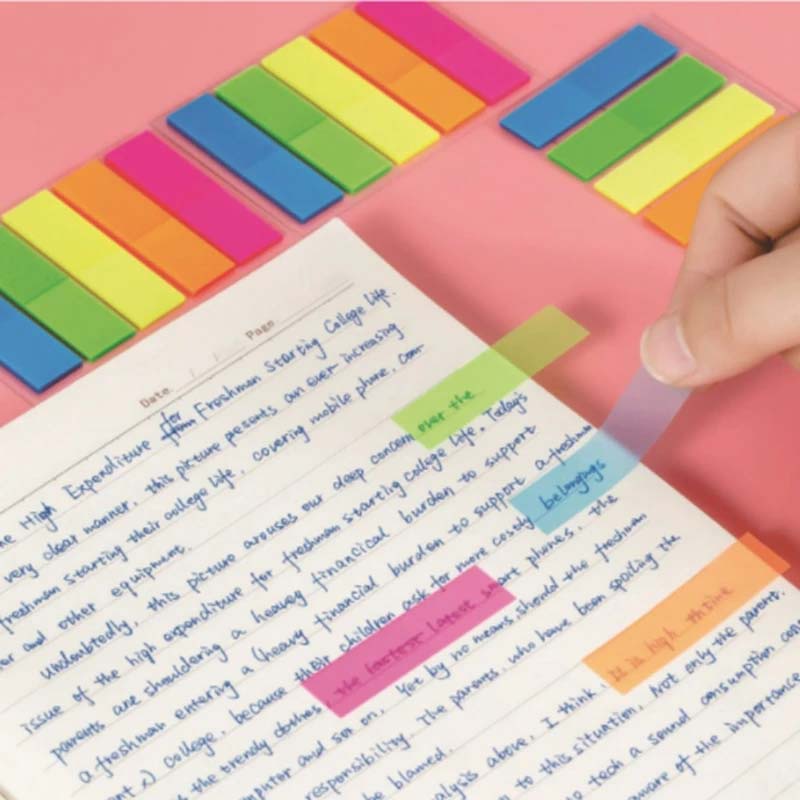 Date / / Page
The High Expenditure for Freshman Starting College Life.
very clear manner, this picture pesents an ever increasing
freshman starting their college life, covering mobile phone, com-
and other equipment.
undoubtedly, this picture arouses our deep concern over the
issue of the high expenditure for freshman starting college life. Today's
parents are shouldering a heavy financial burden to support
a freshman entering a (heavy financial burden to support a freshman
college, because their children ask for more costly belongings
the trendy clothes, the fastest latest smart phones, the
and so on. Yet by no means should the freshman
responsibility. The parents, who have been spoiling the
be blamed.
above, I think, it is high thtime
to this situation. Not only the parent.
tech a sound consumption
aware of the importance